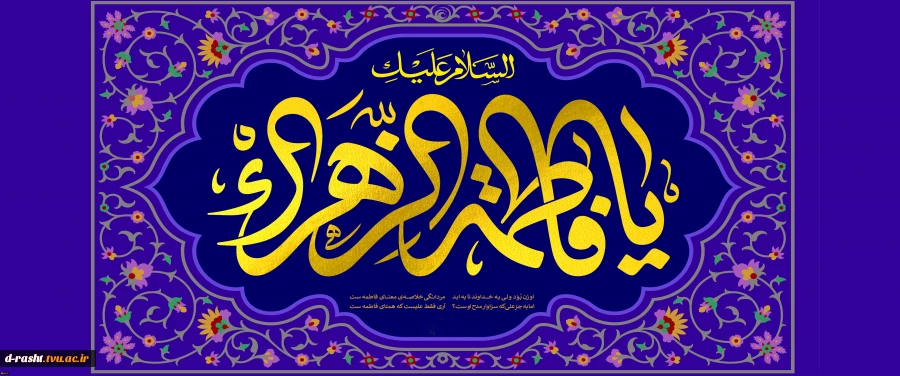 السَّلامُ عَلَيْكِ
يا فاطمة الزّهراء
او زن بُوَد ولی به خداوند تا به ابد مردانگی خلاصه‌ی معنای فاطمه ست
اما به جز علی که سزاوار مدح اوست؟ آری فقط علیست که همتای فاطمه ست
d-rasht.tvu.ac.ir